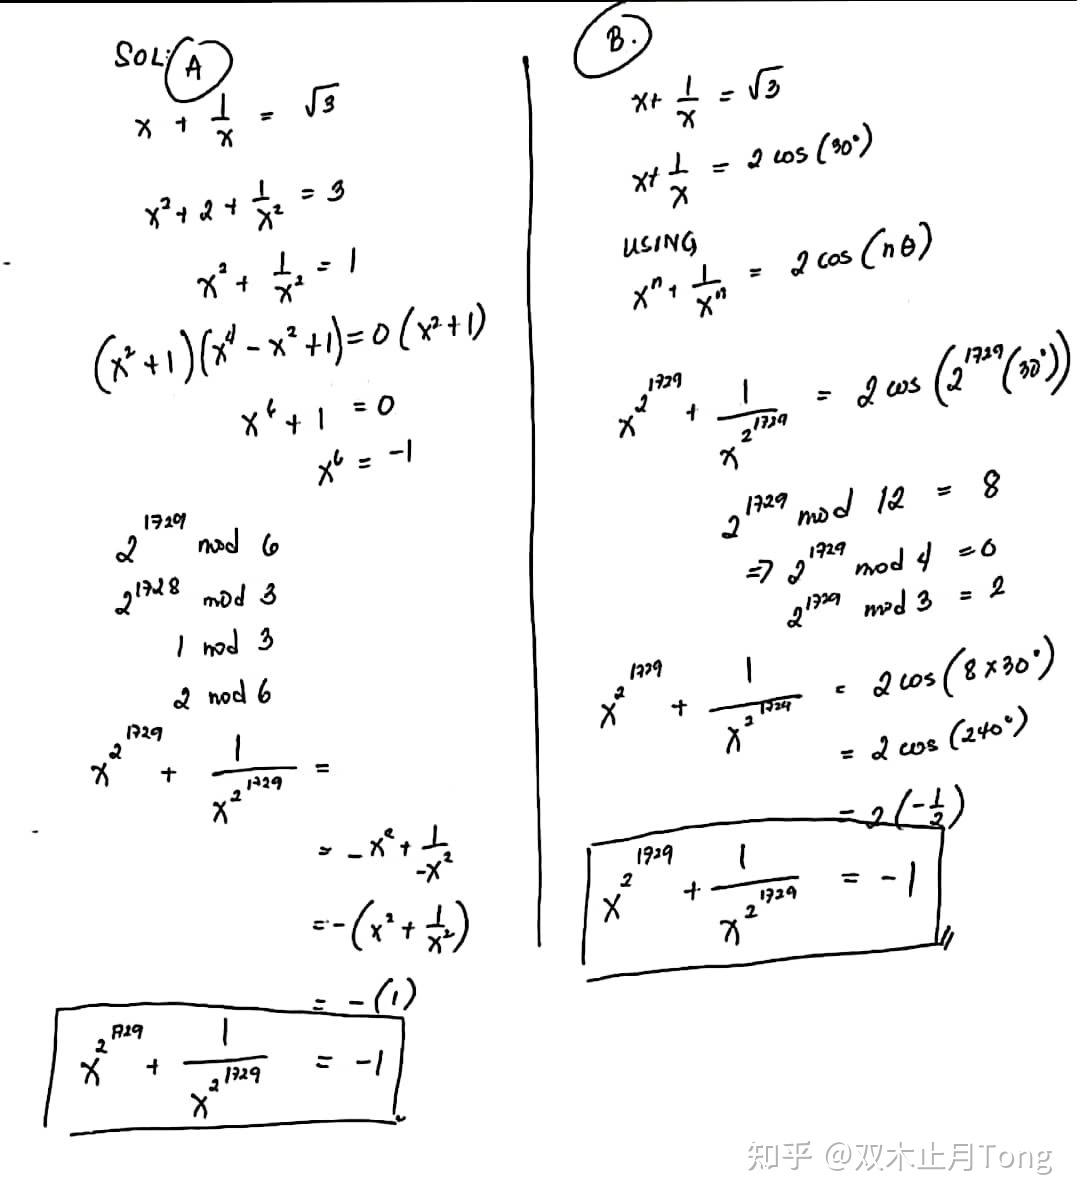 SOL: A
x + 1/x = √3
x² + 2 + 1/x² = 3
x² + 1/x² = 1
(x² + 1)(x⁴ - x² + 1) = 0 (x² + 1)
x⁶ + 1 = 0
x⁶ = -1
2^1729 mod 6
2^1728 mod 3
1 mod 3
2 mod 6
x^2^1729 + 1/x^2^1729 =
= -x² + 1/-x²
= -(x² + 1/x²)
= -(1)
x^2^1729 + 1/x^2^1729 = -1
B.
x + 1/x = √3
x + 1/x = 2 cos (30°)
USING
xⁿ + 1/xⁿ = 2 cos (nθ)
x^2^1729 + 1/x^2^1729 = 2 cos (2^1729 (30°))
2^1729 mod 12 = 8
=> 2^1729 mod 4 = 0
2^1729 mod 3 = 2
x^2^1729 + 1/x^2^1729 = 2 cos (8 x 30°)
= 2 cos (240°)
= 2 (-1/2)
x^2^1729 + 1/x^2^1729 = -1
知乎 @双木止月Tong